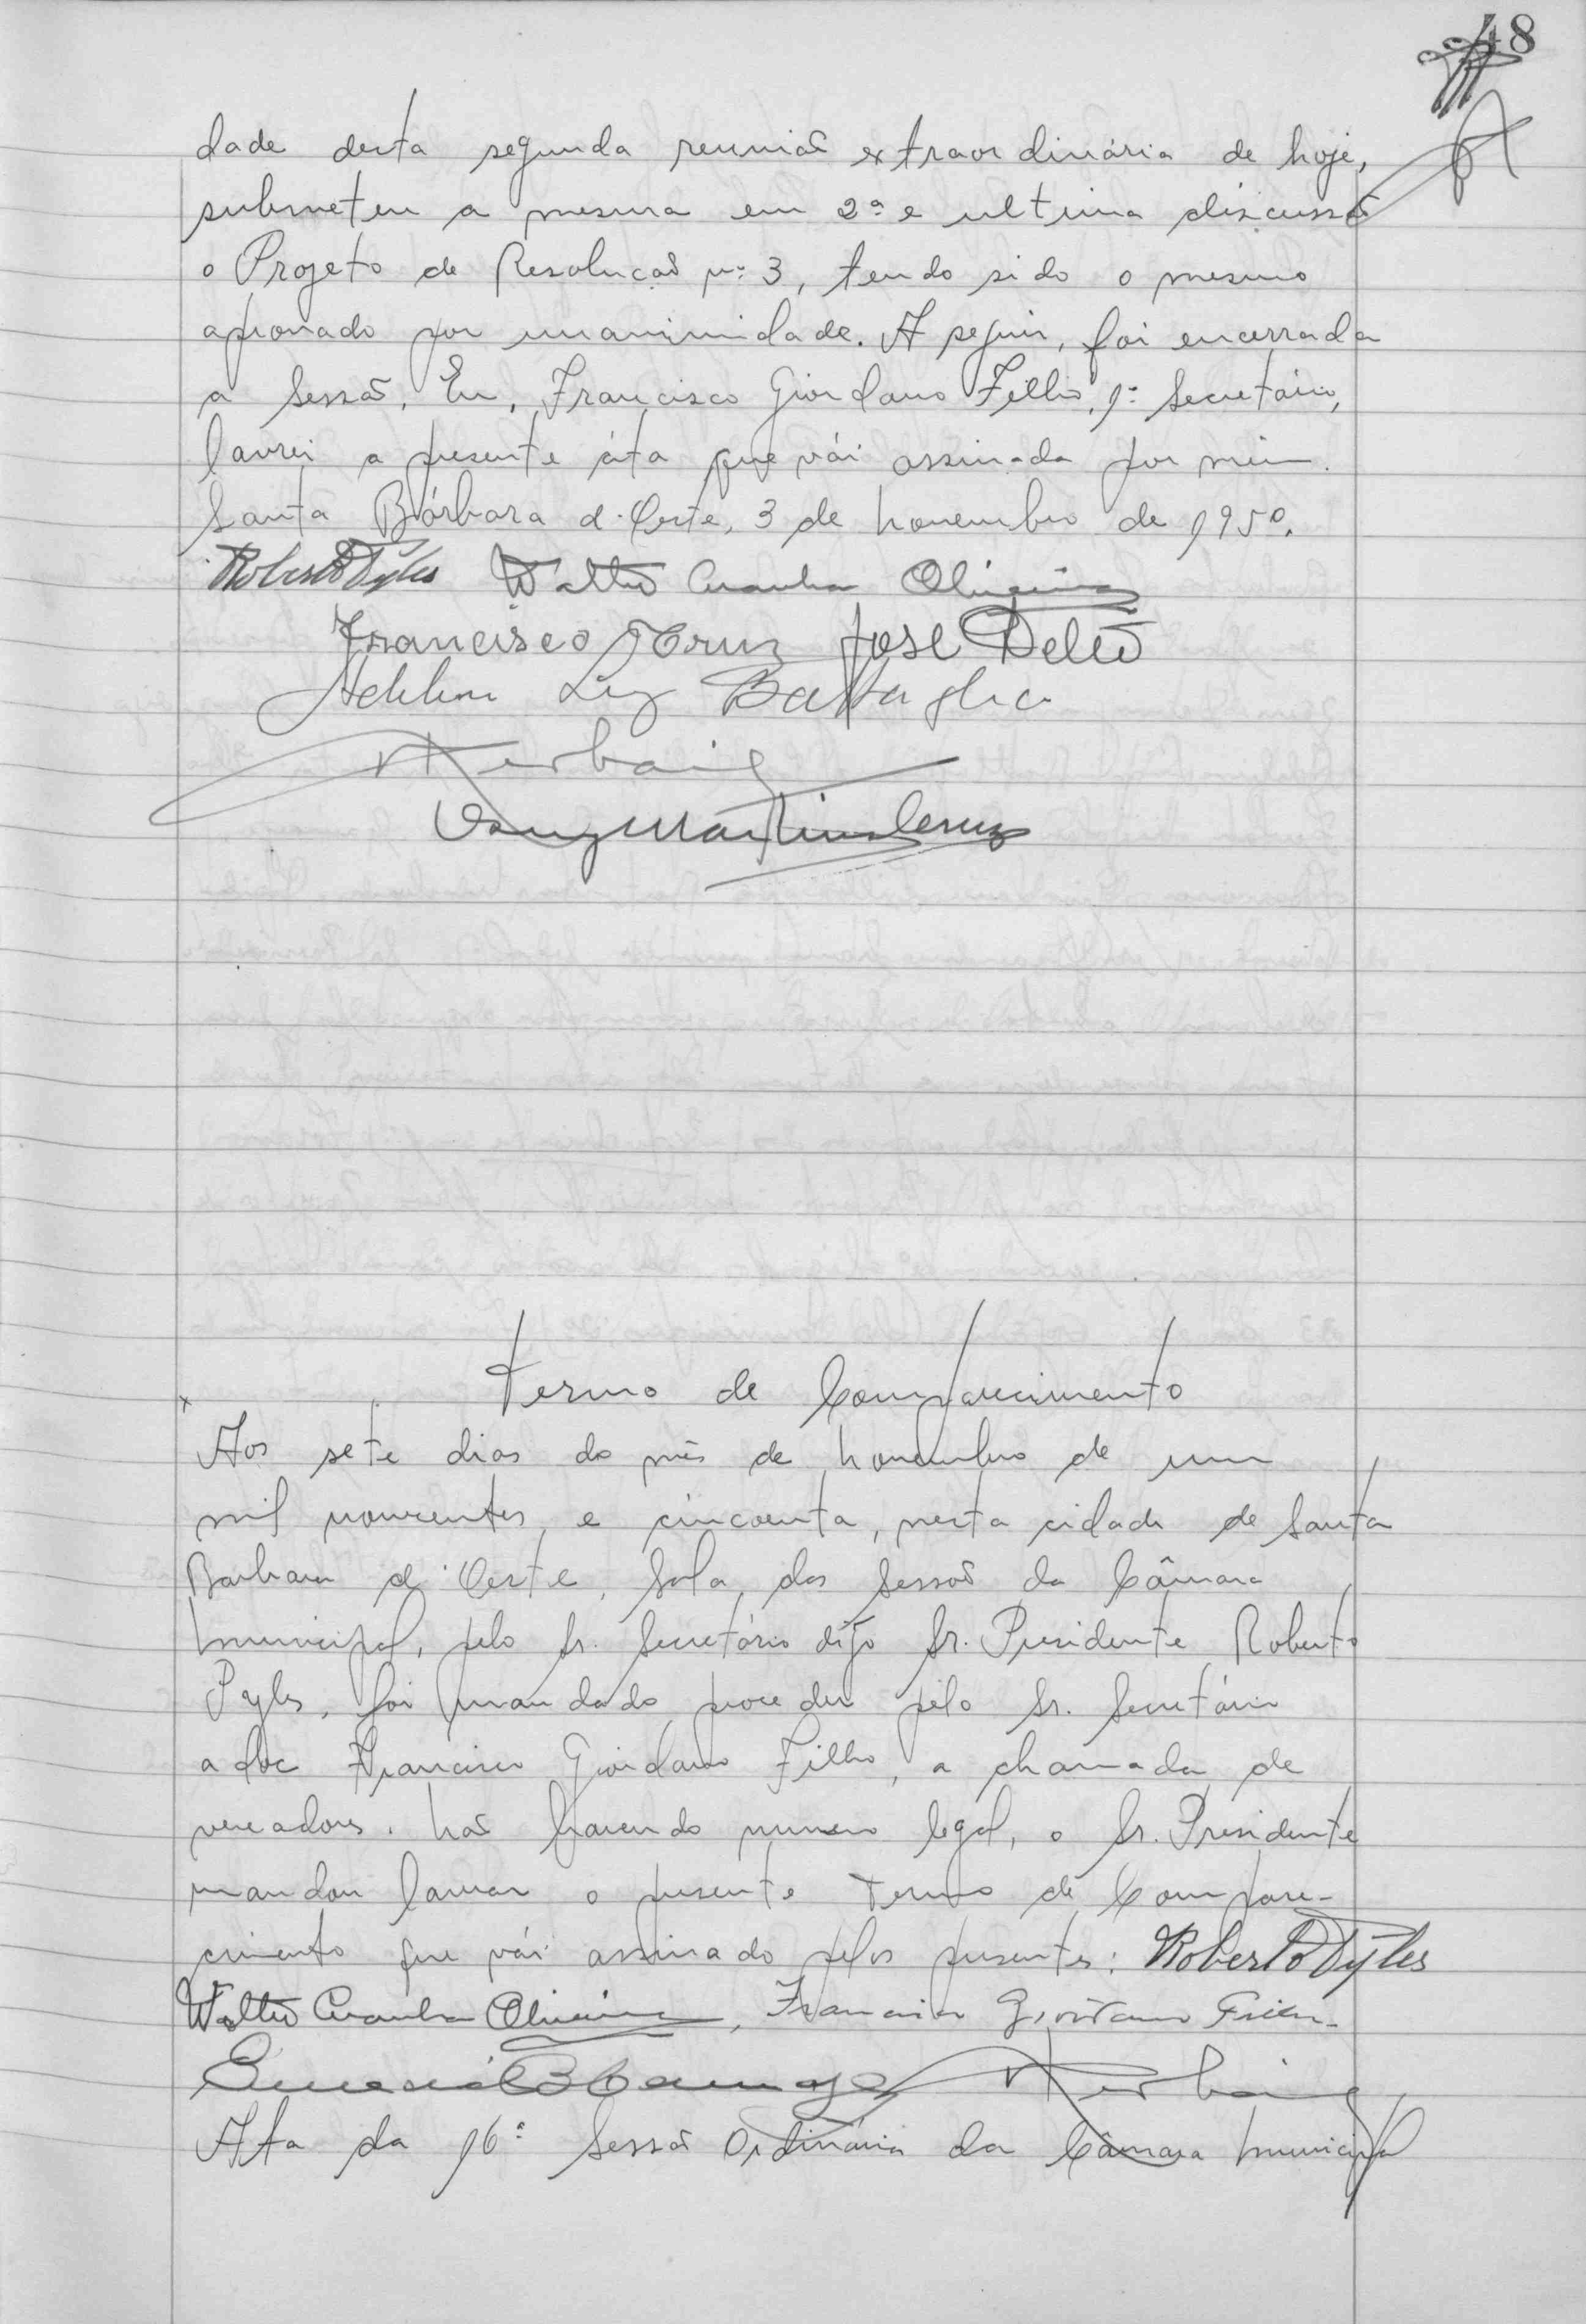 48
dade desta segunda reunião extraordinária de hoje,
submeteu a mesma em 2ª e ultima discussão
o Projeto de Resolução nº 3, tendo sido o mesmo
aprovado por unanimidade. A seguir, foi encerrada
a Sessão. Eu, Francisco Giordano Filho, 1º Secretário,
lavrei a presente áta que vái assinada por mim.
Santa Bárbara d'Oeste, 3 de novembro de 1950.
Roberto Pyles Walter Aranha Oliveira
Francisco Cruz José Dello
Adelino Luz Battaglia
Martins Cruz
Termo de Comparecimento
Aos sete dias do mês de novembro de um
mil novecentos e cincoenta, nesta cidade de Santa
Barbara d'Oeste, Sala das Sessões da Câmara
Municipal, pelo Sr. Secretário digo Sr. Presidente Roberto
Pyles, foi mandado proceder pelo Sr. Secretário
adoc Francisco Giordano Filho, a chamada de
vereadores. Não havendo numero legal, o Sr. Presidente
mandou lavrar o presente Termo de Compare-
cimento que vái assinado pelos presentes: Roberto Pyles
Walter Aranha Oliveira, Francisco Giordano Filho.
Ata da 16ª Sessão Ordinária da Câmara Municipal